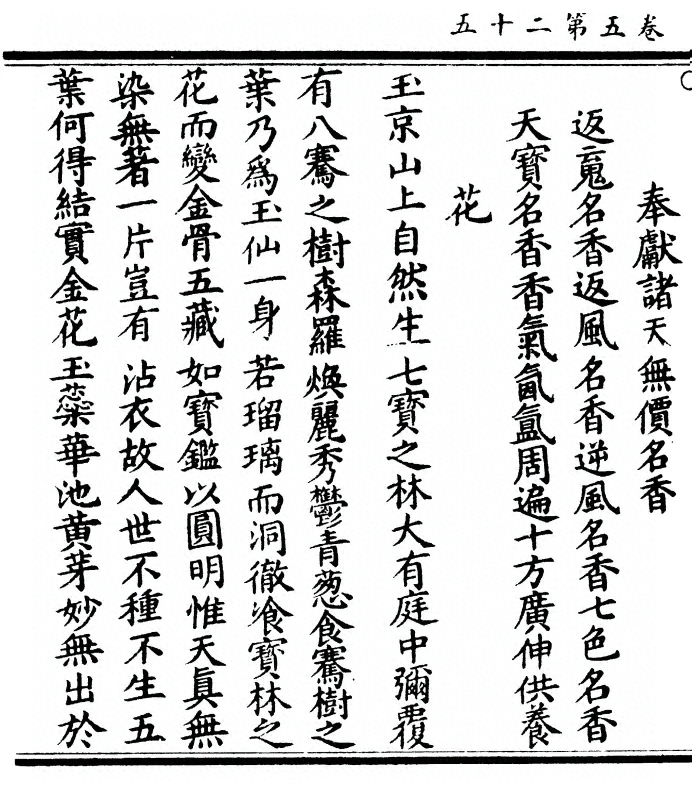 卷五第二十五
奉獻諸天無價名香
返魂名香返風名香逆風名香七色名香
天寶名香香氣氤氳周遍十方廣伸供養
花
玉京山上自然生七寶之林大有庭中彌覆
有八騫之樹森羅煥麗秀鬱青葱食騫樹之
葉乃爲玉仙一身若瑠璃而洞徹飡寶林之
花而變金骨五藏如寶鑑以圓明惟天眞無
染無著一片豈有沾衣故人世不種不生五
葉何得結實金花玉蘂華池黃芽妙無出於